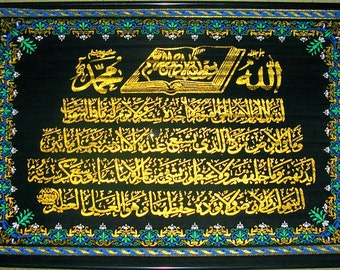 الله
بسم الله الرحمن الرحيم
محمد
الله لا إله إلا هو الحي القيوم لا تأخذه سنة ولا نوم له ما في السموات
وما في الأرض من ذا الذي يشفع عنده إلا بإذنه يعلم ما بين
أيديهم وما خلفهم ولا يحيطون بشيء من علمه إلا بما شاء وسع كرسيه
السموات والأرض ولا يؤده حفظهما وهو العلي العظيم